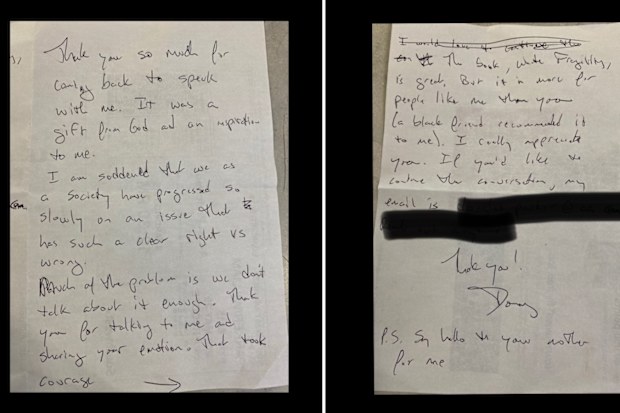 Thank you so much for
coming back to speak
with me. It was a
gift from God ad an inspiration
to me.
I am saddened that we as
a society have progressed so
slowly on an issue that
has such a clear right vs
wrong.
Much of the problem is we don't
talk about it enough. Thank
you for talking to me ad
sharing your emotion. That took
courage →
I would love to continue the
The book, White Fragility,
is great. But it is more for
people like me than you
(a black friend recommended it
to me). I really appreciate
you. If you'd like to
continue the conversation, my
email is
Thank you!
P.S. Say hello to your mother
for me